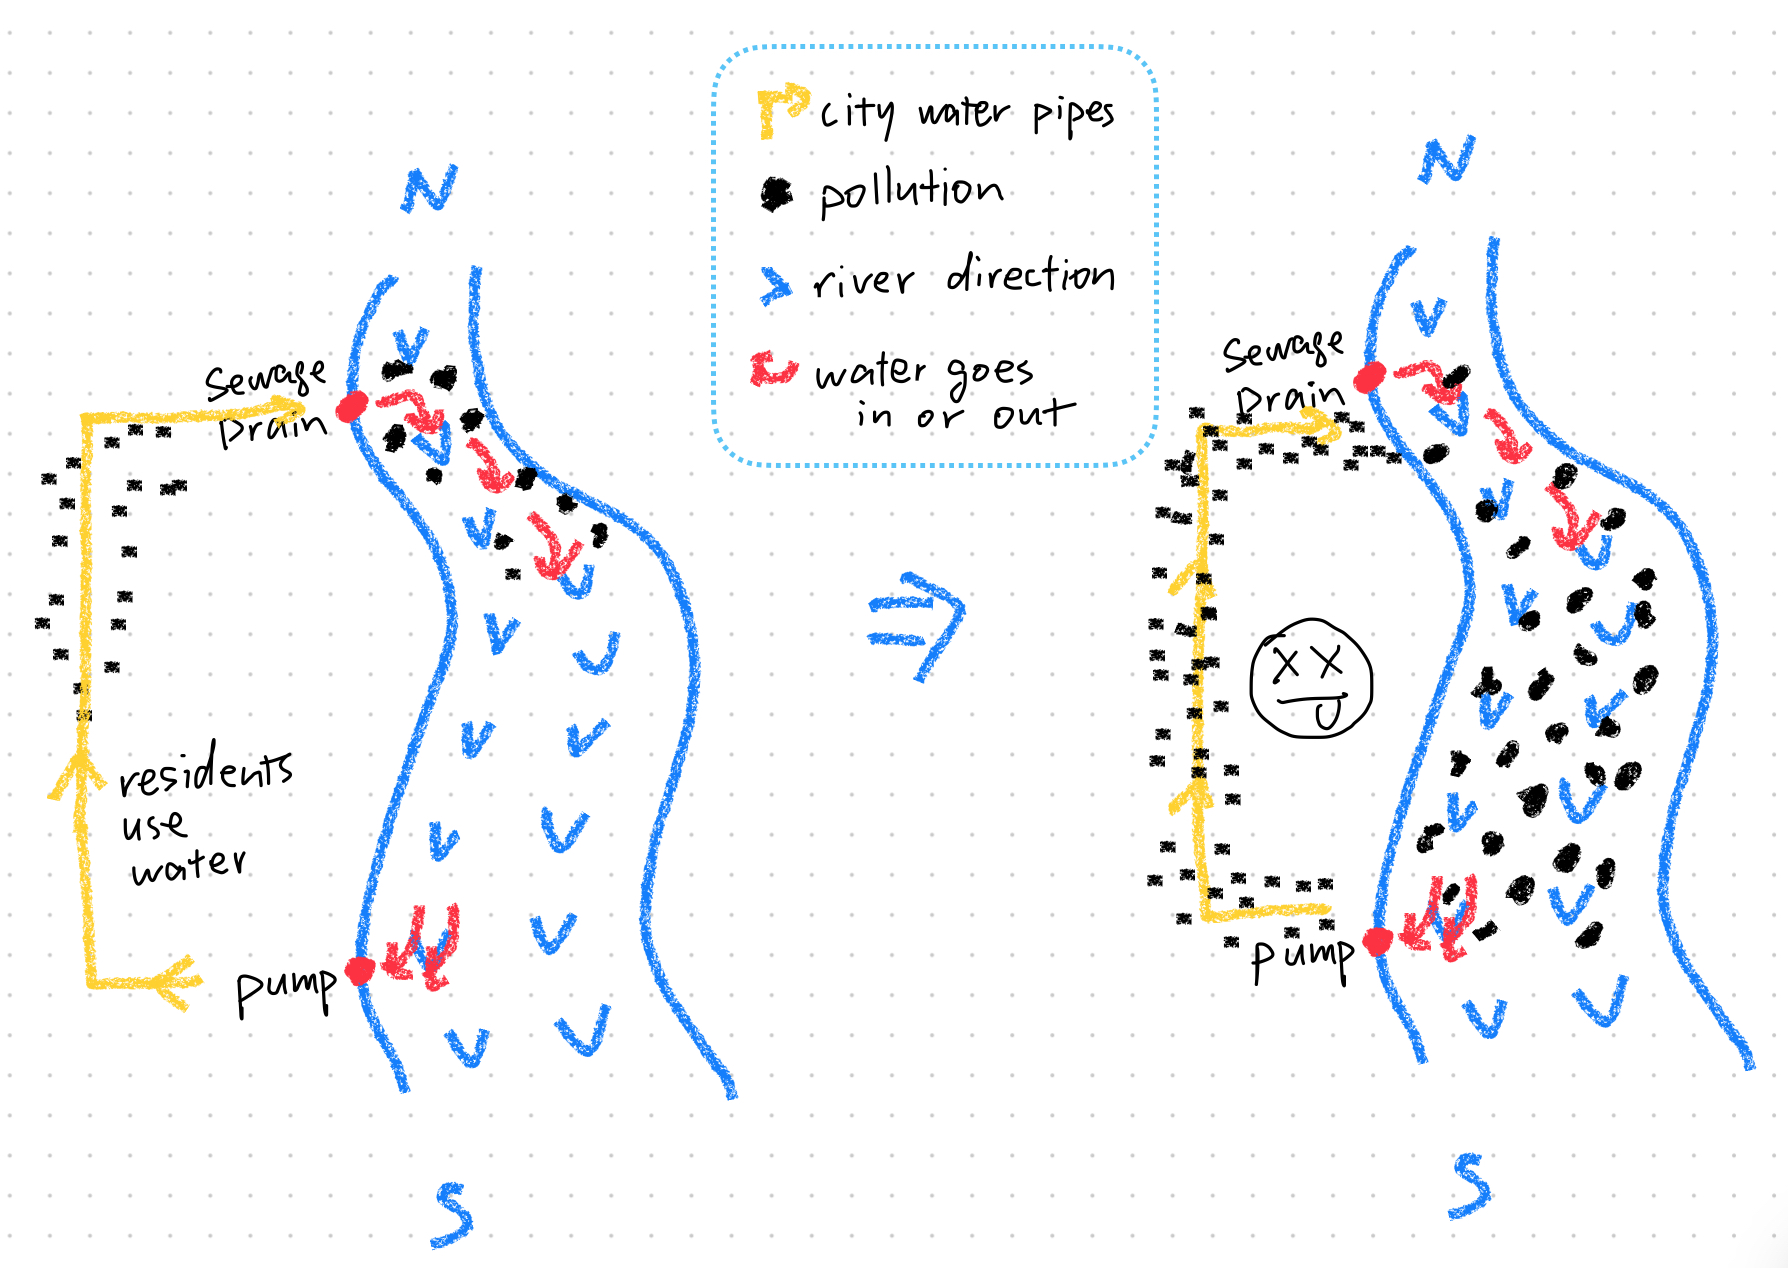 city water pipes
pollution
river direction
water goes
in or out
N
Sewage
Drain
residents
use
water
pump
S
N
Sewage
Drain
pump
S